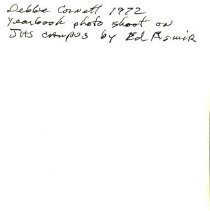 Debbie Cornett 1972
Yearbook photo shoot on
JHS campus by Ed